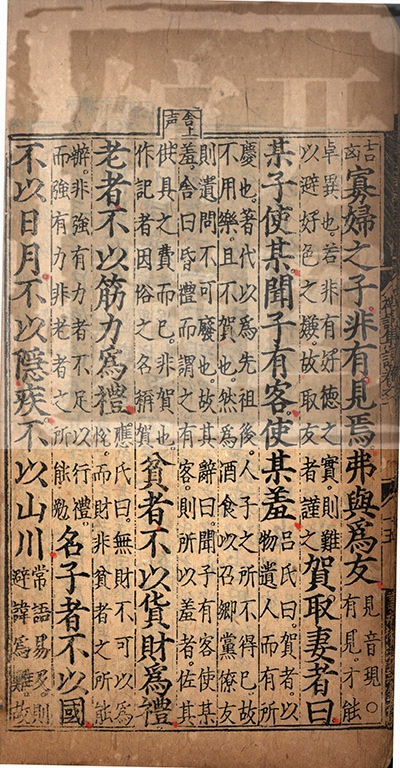 舍上
声
吉
凶
寡婦之子非有見焉弗與爲友
見音現○
有見才能
卓異也若非有好德之實則難
以避好色之嫌故取友者謹之
賀取妻者曰
某子使某聞子有客使某羞
呂氏曰賀者以
物遺人而有所
慶也著代以爲先祖後人子之所不得已故
不用樂且不賀也然爲酒食以召鄉黨僚友
則遺問不可廢也故其辭曰聞子有客使某
羞舍曰昏禮而謂之有客則所以羞者佐其
供具之費而已非賀也
作記者因俗之名稱賀
貧者不以貨財爲禮
老者不以筋力爲禮
應氏曰無財不可以爲
悅而財非貧者之所能
辦非強有力者不足以行禮
而強有力非老者之所能勉
名子者不以國
不以日月不以隱疾不以山川
常語易及則
避諱爲難故